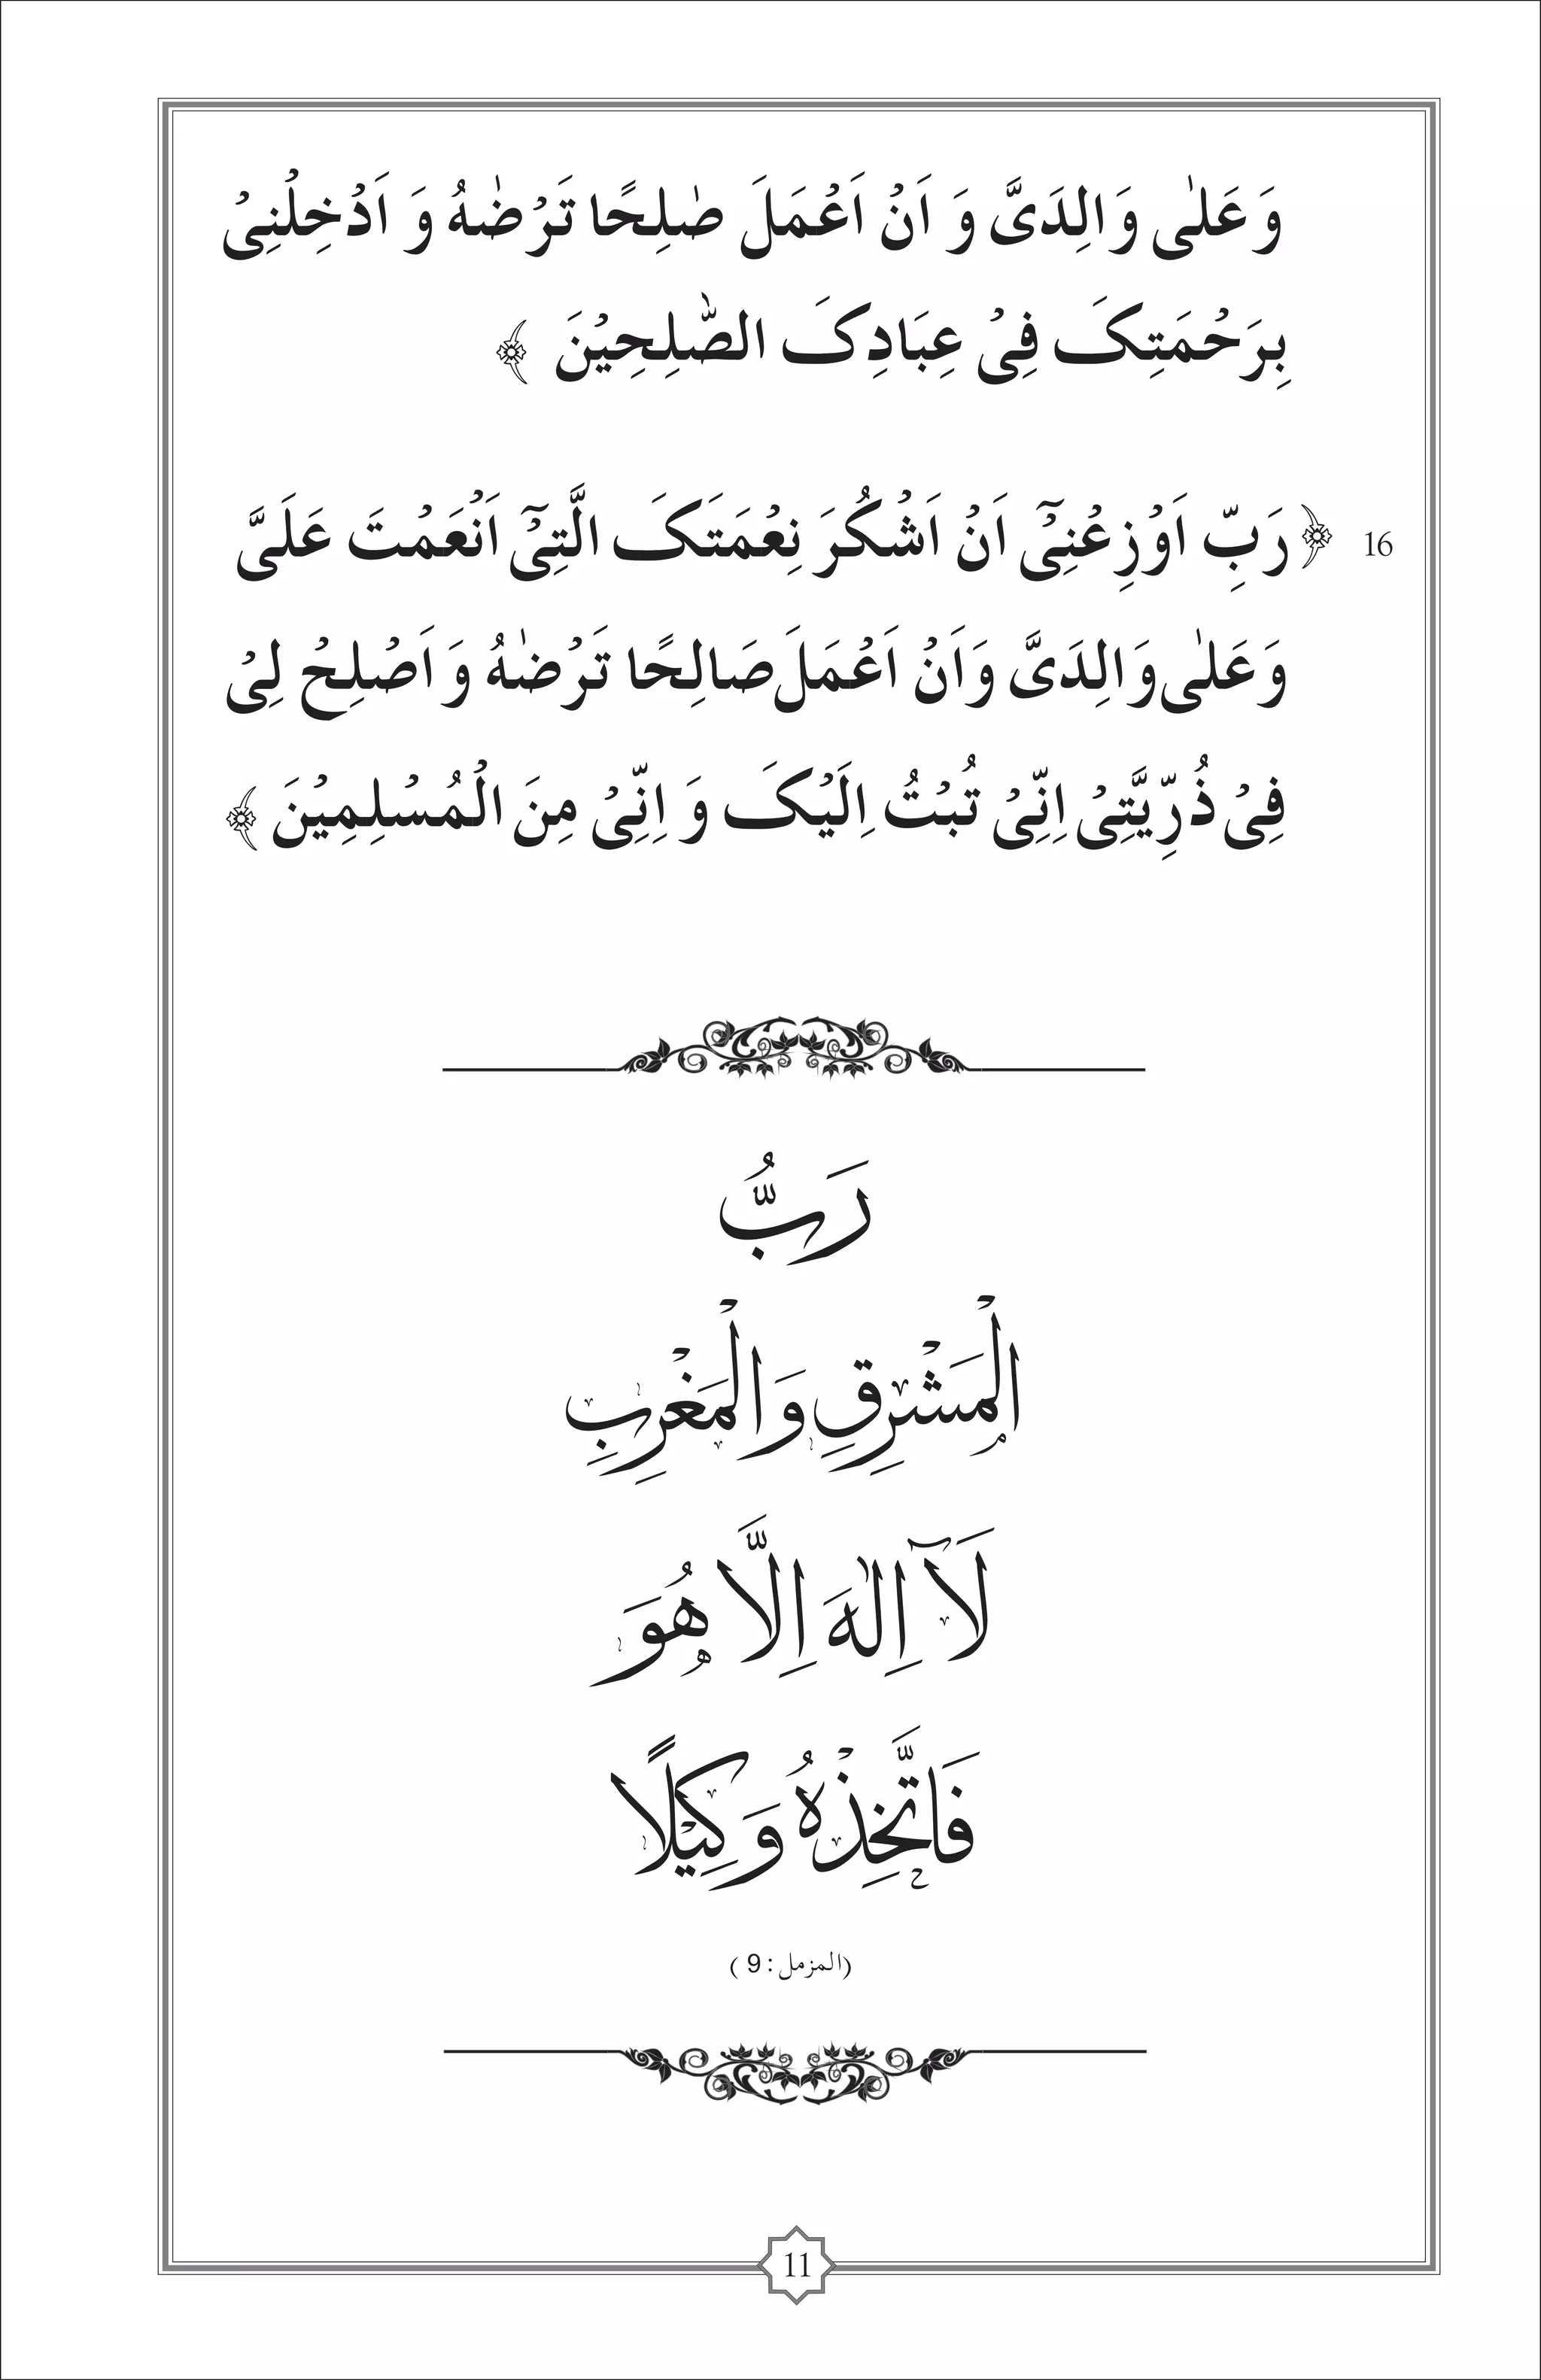 وَعَلٰی وَالِدَیَّ وَ اَنْ اَعْمَلَ صٰلِحًا تَرْضٰهُ وَ اَدْخِلْنِیْ
بِرَحْمَتِکَ فِیْ عِبَادِکَ الصّٰلِحِیْنَ ﴾
16 ﴿ رَبِّ اَوْزِعْنِیْٓ اَنْ اَشْکُرَ نِعْمَتَکَ الَّتِیْٓ اَنْعَمْتَ عَلَیَّ
وَعَلٰی وَالِدَیَّ وَاَنْ اَعْمَلَ صَالِحًا تَرْضٰهُ وَ اَصْلِحْ لِیْ
فِیْ ذُرِّیَّتِیْ اِنِّیْ تُبْتُ اِلَیْکَ وَ اِنِّیْ مِنَ الْمُسْلِمِیْنَ ﴾
رَبُّ
الْمَشْرِقِ وَالْمَغْرِبِ
لَآ اِلٰهَ اِلَّا هُوَ
فَاتَّخِذْهُ وَكِيْلًا
(المزمل: 9)
11